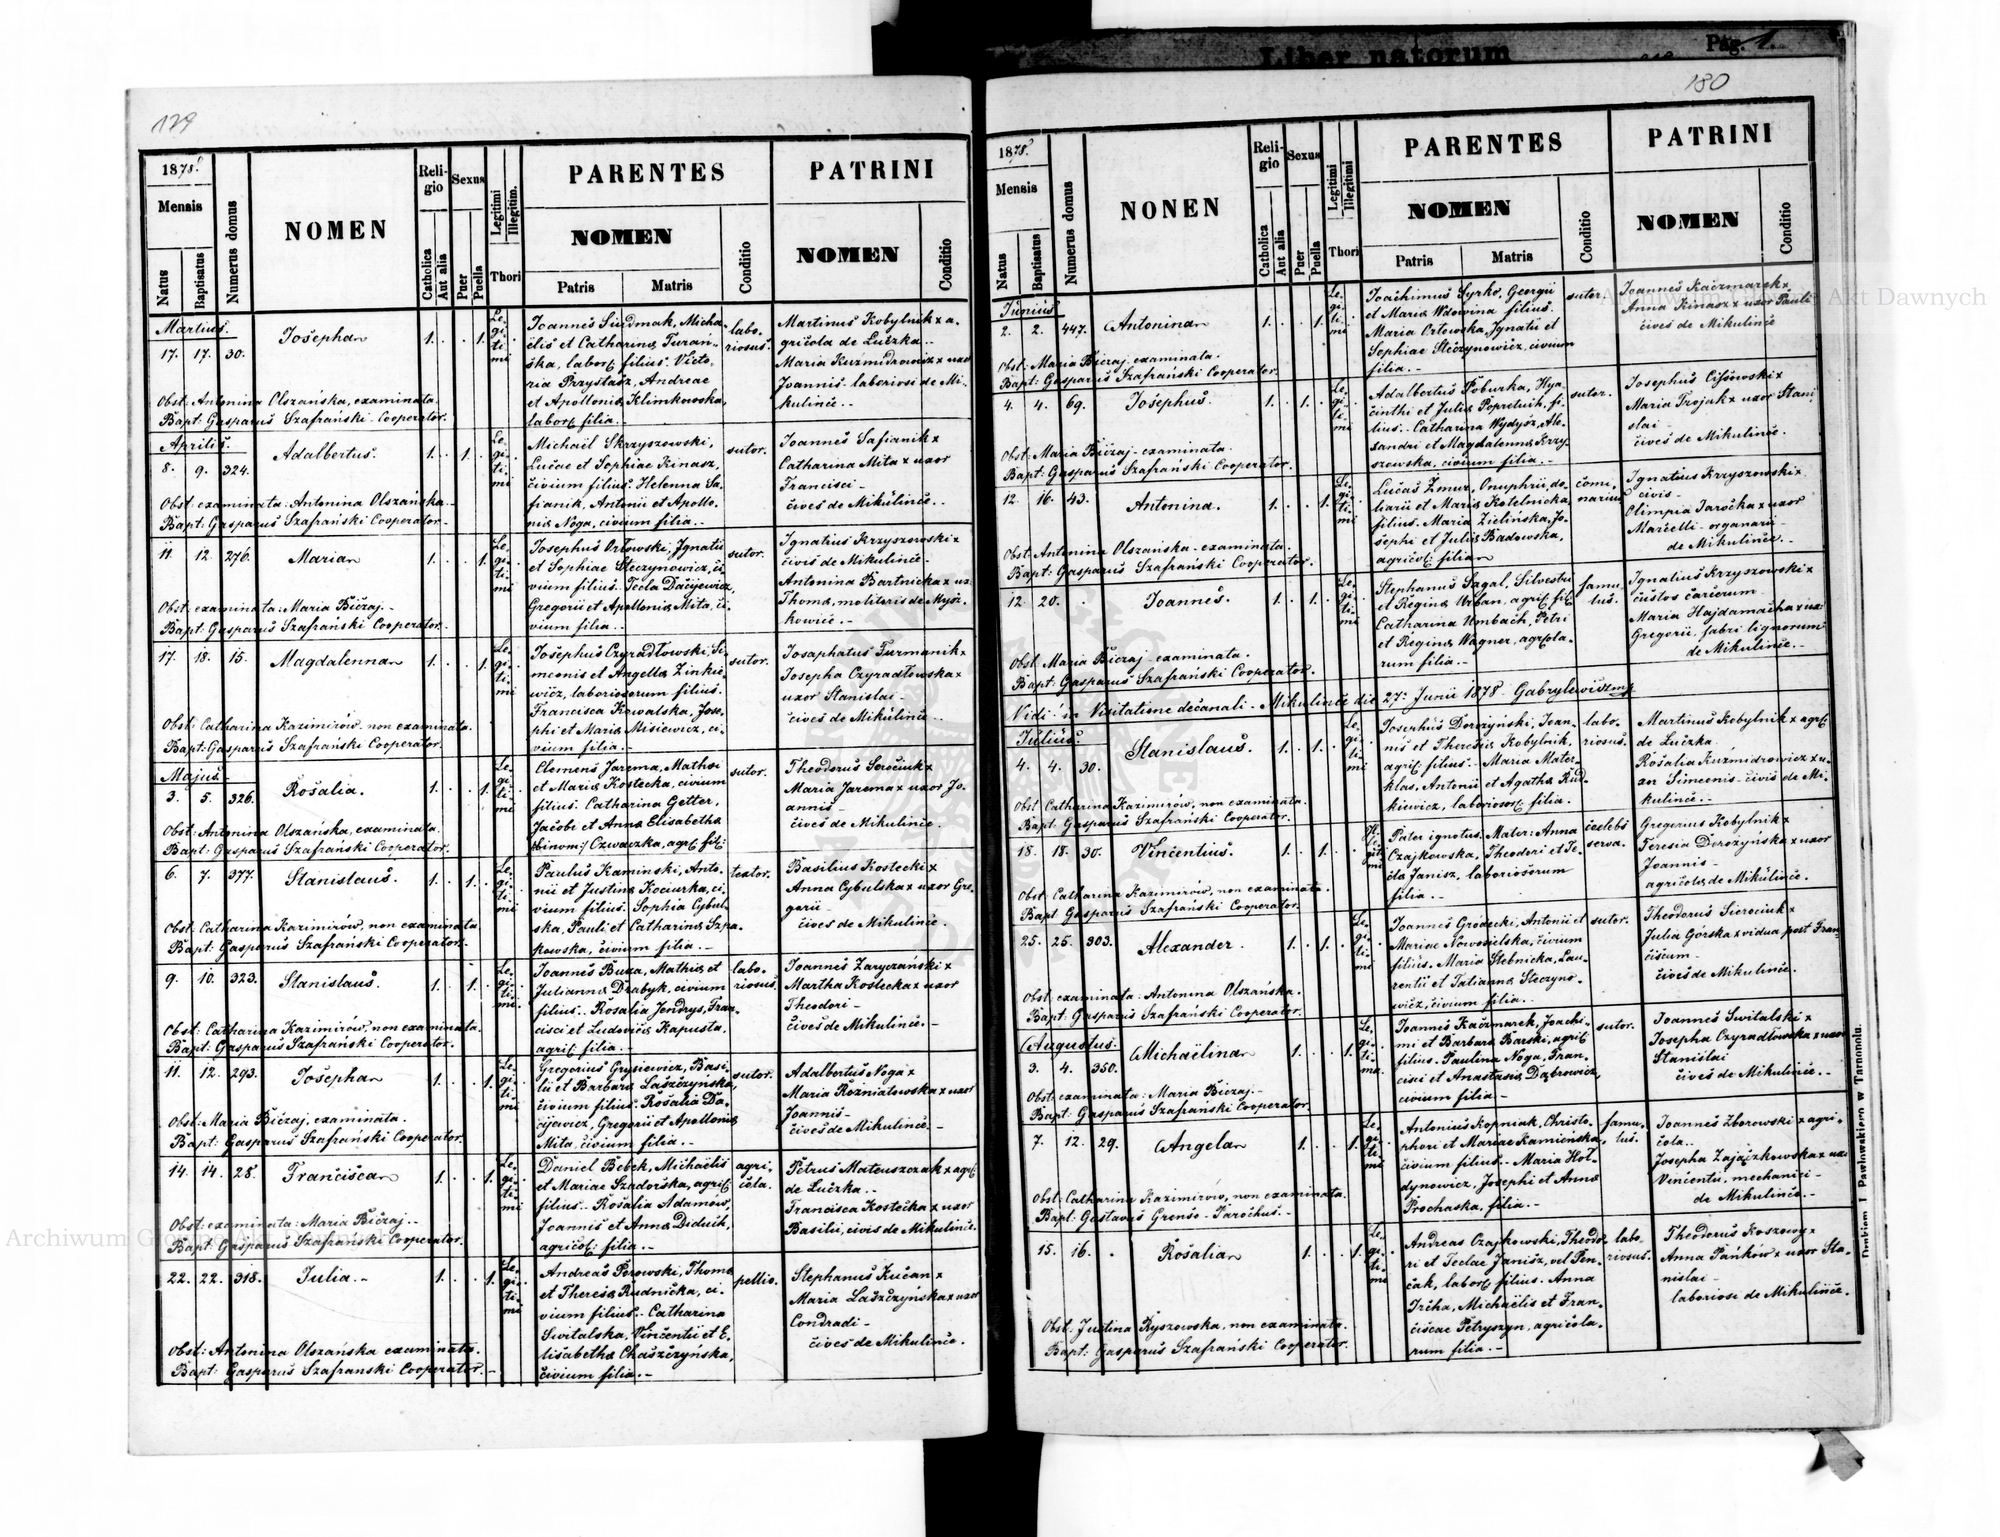 Liber natorum
Pag. 1.
179
1878.
Mensis
Natus
Baptisatus
Numerus domus
NOMEN
Religio
Catholica
Aut alia
Sexus
Puer
Puella
Legitimi
Illegitim.
Thori
PARENTES
NOMEN
Patris
Matris
Conditio
PATRINI
NOMEN
Conditio
Martius.
17. 17. 30. Josepha 1. 1. Legitimi
Joannes Siudmak, Micha-
elis et Catharina Turan-
ska, labor. filius. Victo-
ria Przystasz, Andreae
et Apollonia Klimkowska,
labor. filia.
labo-
riosus.
Martinus Kobylnik x a-
gricola de Luczka.
Maria Kuzmidrowicz x uxor
Joannis laboriosi de Mi-
kulince.
Obst: Antonina Olszańska, examinata.
Bapt: Gasparus Szafrański Cooperator.
Aprilis.
8. 9. 324. Adalbertus. 1. 1. Legitimi
Michaël Skrzyszewski,
Lucae et Sophiae Kinasz,
civium filius. Helenna Sa-
fianik, Antonii et Apollo-
nia Noga, civium filia.
sutor.
Joannes Safianik x
Catharina Mita x uxor
Francisci
cives de Mikulince.
Obst: examinata: Antonina Olszańska.
Bapt: Gasparus Szafrański Cooperator.
11. 12. 276. Maria 1. 1. Legitimi
Josephus Orłowski, Ignatii
et Sophiae Steczynowicz, ci-
vium filius. Tecla Dacijewicz,
Gregorii et Apollonia Mita, ci-
vium filia.
sutor.
Ignatius Krzyszowski x
civis de Mikulince.
Antonina Bartnicka x ux.
Thoma, molitoris de Mysz-
kowice.
Obst: examinata: Maria Biczaj.
Bapt: Gasparus Szafrański Cooperator.
17. 18. 15. Magdalenna 1. 1. Legitimi
Josephus Czyradłowski, Si-
meonis et Angella Zinkie-
wicz, laboriosorum filius.
Francisca Kowalska, Jose-
phi et Maria Misiewicz, ci-
vium filia.
sutor.
Josaphatus Furmanik x
Josepha Czyradłowska x
uxor Stanislai
cives de Mikulince.
Obst: Catharina Kazimirów, non examinata.
Bapt: Gasparus Szafrański Cooperator.
Majus.
3. 5. 326. Rosalia. 1. 1. Legitimi
Clemens Jarema, Mathaei
et Maria Kostecka, civium
filius. Catharina Getter,
Jacobi et Anna Elisabetha
binom: Czwaczka, agric. fil:
sutor.
Theodorus Serociuk x
Maria Jarema x uxor Jo-
annis
cives de Mikulince.
Obst: Antonina Olszańska, examinata.
Bapt: Gasparus Szafrański Cooperator.
6. 7. 377. Stanislaus. 1. 1. Legitimi
Paulus Kaminski, Anto-
nii et Justina Kociurka, ci-
vium filius. Sophia Cybul-
ska, Pauli et Catharina Szpa-
kowska, civium filia.
textor.
Basilius Kostecki x
Anna Cybulska x uxor Gre-
gorii
cives de Mikulince.
Obst: Catharina Kazimirów, non examinata.
Bapt: Gasparus Szafrański Cooperator.
9. 10. 323. Stanislaus. 1. 1. Legitimi
Joannes Buza, Mathia et
Julianna Drabyk, civium
filius. Rosalia Jendrys, Fran-
cisci et Ludovica Kapusta,
agric. filia.
labo-
riosus.
Joannes Zaryczański x
Martha Kostecka x uxor
Theodori
cives de Mikulince.
Obst: Catharina Kazimirów, non examinata.
Bapt: Gasparus Szafrański Cooperator.
11. 12. 293. Josepha 1. 1. Legitimi
Gregorius Grysiewicz, Basi-
lii et Barbara Laszczyńska,
civium filius. Rosalia Da-
cijewicz, Gregorii et Apollonia
Mita, civium filia.
sutor.
Adalbertus Noga x
Maria Rozniatowska x uxor
Joannis
cives de Mikulince.
Obst: Maria Biczaj, examinata.
Bapt: Gasparus Szafrański Cooperator.
14. 14. 28. Francisca 1. 1. Legitimi
Daniel Bebek, Michaëlis
et Mariae Szadorska, agric.
filius. Rosalia Adamów,
Joannis et Anna Diduik,
agricol: filia.
agri-
cola.
Petrus Mateuszczak x agr.
de Luczka.
Francisca Kostecka x uxor
Basilii, civis de Mikulince.
Obst: examinata: Maria Biczaj.
Bapt: Gasparus Szafrański Cooperator.
22. 22. 318. Julia. 1. 1. Legitimi
Andreas Perowski, Thoma
et Theresia Rudnicka, ci-
vium filius. Catharina
Switalska, Vincentii et E-
lisabetha Chaszczyńska,
civium filia.
pellio.
Stephanus Kucan x
Maria Laszczyńska x uxor
Condradi
cives de Mikulince.
Obst: Antonina Olszańska examinata.
Bapt: Gasparus Szafranski Cooperator.
180
1878.
Mensis
Natus
Baptisatus
Numerus domus
NONEN
Religio
Catholica
Aut alia
Sexus
Puer
Puella
Legitimi
Illegitimi
Thori
PARENTES
NOMEN
Patris
Matris
Conditio
PATRINI
NOMEN
Conditio
Junius.
2. 2. 447. Antonina 1. 1. Legitimi
Joachimus Syrko, Georgii
et Maria Wdowina filius.
Maria Orłowska, Ignatii et
Sophiae Steczynowicz, civium
filia.
sutor.
Joannes Kaczmarek x
Anna Kinasz x uxor Pauli
cives de Mikulince
Obst: Maria Biczaj examinata.
Bapt: Gasparus Szafrański Cooperator.
4. 4. 69. Josephus. 1. 1. Legitimi
Adalbertus Poburka, Hya-
cinthi et Julia Popretuik, fi-
lius. Catharina Wydysz, Ale-
xandri et Magdalenna Krzy-
szewska, civium filia.
sutor.
Josephus Cissowski x
Maria Trojak x uxor Stani-
slai
cives de Mikulince.
Obst: Maria Biczaj examinata.
Bapt: Gasparus Szafrański Cooperator.
12. 16. 43. Antonina. 1. 1. Legitimi
Lucas Zmur, Onuphrii, do-
liarii et Maria Kotelnicka,
filius. Maria Zielińska, Jo-
sephi et Julia Badowska,
agricol: filia
comu-
narius.
Ignatius Krzyszowski x
civis
Olimpia Jarocka x uxor
Marcelli organarii
de Mikulince.
Obst: Antonina Olszańska examinata.
Bapt: Gasparus Szafrański Cooperator.
12. 20. Joannes. 1. 1. Legitimi
Stephanus Sagal, Silvestri
et Regina Urban agric. fil.
Catharina Umbach, Petri
et Regina Wagner, agricola-
rum filia.
famu-
lus.
Ignatius Krzyszowski x
custos carcerum
Maria Hajdamacha x ux:
Gregorii, fabri lignorum
de Mikulince.
Obst: Maria Biczaj examinata.
Bapt: Gasparus Szafrański Cooperator.
Vidi in Visitatione decanali. Mikulince die 27. Junii 1878 Gabrylewicz mp.
Julius.
4. 4. 30. Stanislaus. 1. 1. Legitimi
Josephus Dorozyński, Joan-
nis et Theresia Kobylnik,
agric. filius. Maria Mater-
klas, Antonii et Agatha Rud-
kiewicz, laborios. filia.
labo-
riosus.
Martinus Kobylnik x agric.
de Luczka.
Rosalia Kuzmidrowicz x u-
xor Simeonis civis de Mi-
kulince.
Obst: Catharina Kazimirów, non examinata.
Bapt: Gasparus Szafrański Cooperator.
18. 18. 30. Vincentius. 1. 1. Illegitimi
Pater ignotus. Mater: Anna
Czajkowska, Theodori et Te-
cla Janisz, laboriosorum
filia.
caelebs
serva.
Gregorius Kobylnik x
Teresia Dorozyńska x uxor
Joannis
agricola de Mikulince.
Obst: Catharina Kazimirów, non examinata.
Bapt: Gasparus Szafrański Cooperator.
25. 25. 303. Alexander. 1. 1. Legitimi
Joannes Grodecki, Antonii et
Mariae Nowosielska, civium
filius. Maria Stebnicka, Lau-
rentii et Tatianna Steczyno-
wicz, civium filia.
sutor.
Theodorus Sierociuk x
Julia Górska x vidua post Fran-
ciscum
cives de Mikulince.
Obst: examinata: Antonina Olszańska.
Bapt: Gasparus Szafrański Cooperator.
Augustus.
3. 4. 350. Michaëlina 1. 1. Legitima.
Joannes Kaczmarek, Joachi-
mi et Barbara Barski, agric.
filius. Paulina Noga, Fran-
cisci et Anastasia Dąbrowicz,
civium filia
sutor.
Joannes Switalski x
Josepha Czyradłowska x uxor
Stanislai
cives de Mikulince.
Obst: examinata: Maria Biczaj.
Bapt: Gasparus Szafrański Cooperator.
7. 12. 29. Angela 1. 1. Legitimi
Antonius Kopniak, Christo-
phori et Mariae Kamieńska,
civium filius. Maria Hoł-
dynowicz, Josephi et Anna
Prochaska, filia.
famu-
lus.
Joannes Zborowski x agri-
cola.
Josepha Zajączkowska x ux:
Vincentii, mechanici
de Mikulince.
Obst: Catharina Kazimirów, non examinata.
Bapt: Gustavus Grenso Parochus.
15. 16. Rosalia 1. 1. Legitimi
Andreas Czajkowski, Theodo-
ri et Teclae Janisz, vel Pen-
cak, labor. filius. Anna
Ircha, Michaëlis et Fran-
ciscae Petryszyn, agricola-
rum filia.
labo-
riosus.
Theodorus Koszowy x
Anna Pańków x uxor Sta-
nislai
laboriosi de Mikulince.
Obst: Justina Ryszowska, non examinata.
Bapt: Gasparus Szafrański Cooperator.
Drukiem J. Pawłowskiego w Tarnopolu.
Archiwum Główne Akt Dawnych
Archiwum Główne Akt Dawnych